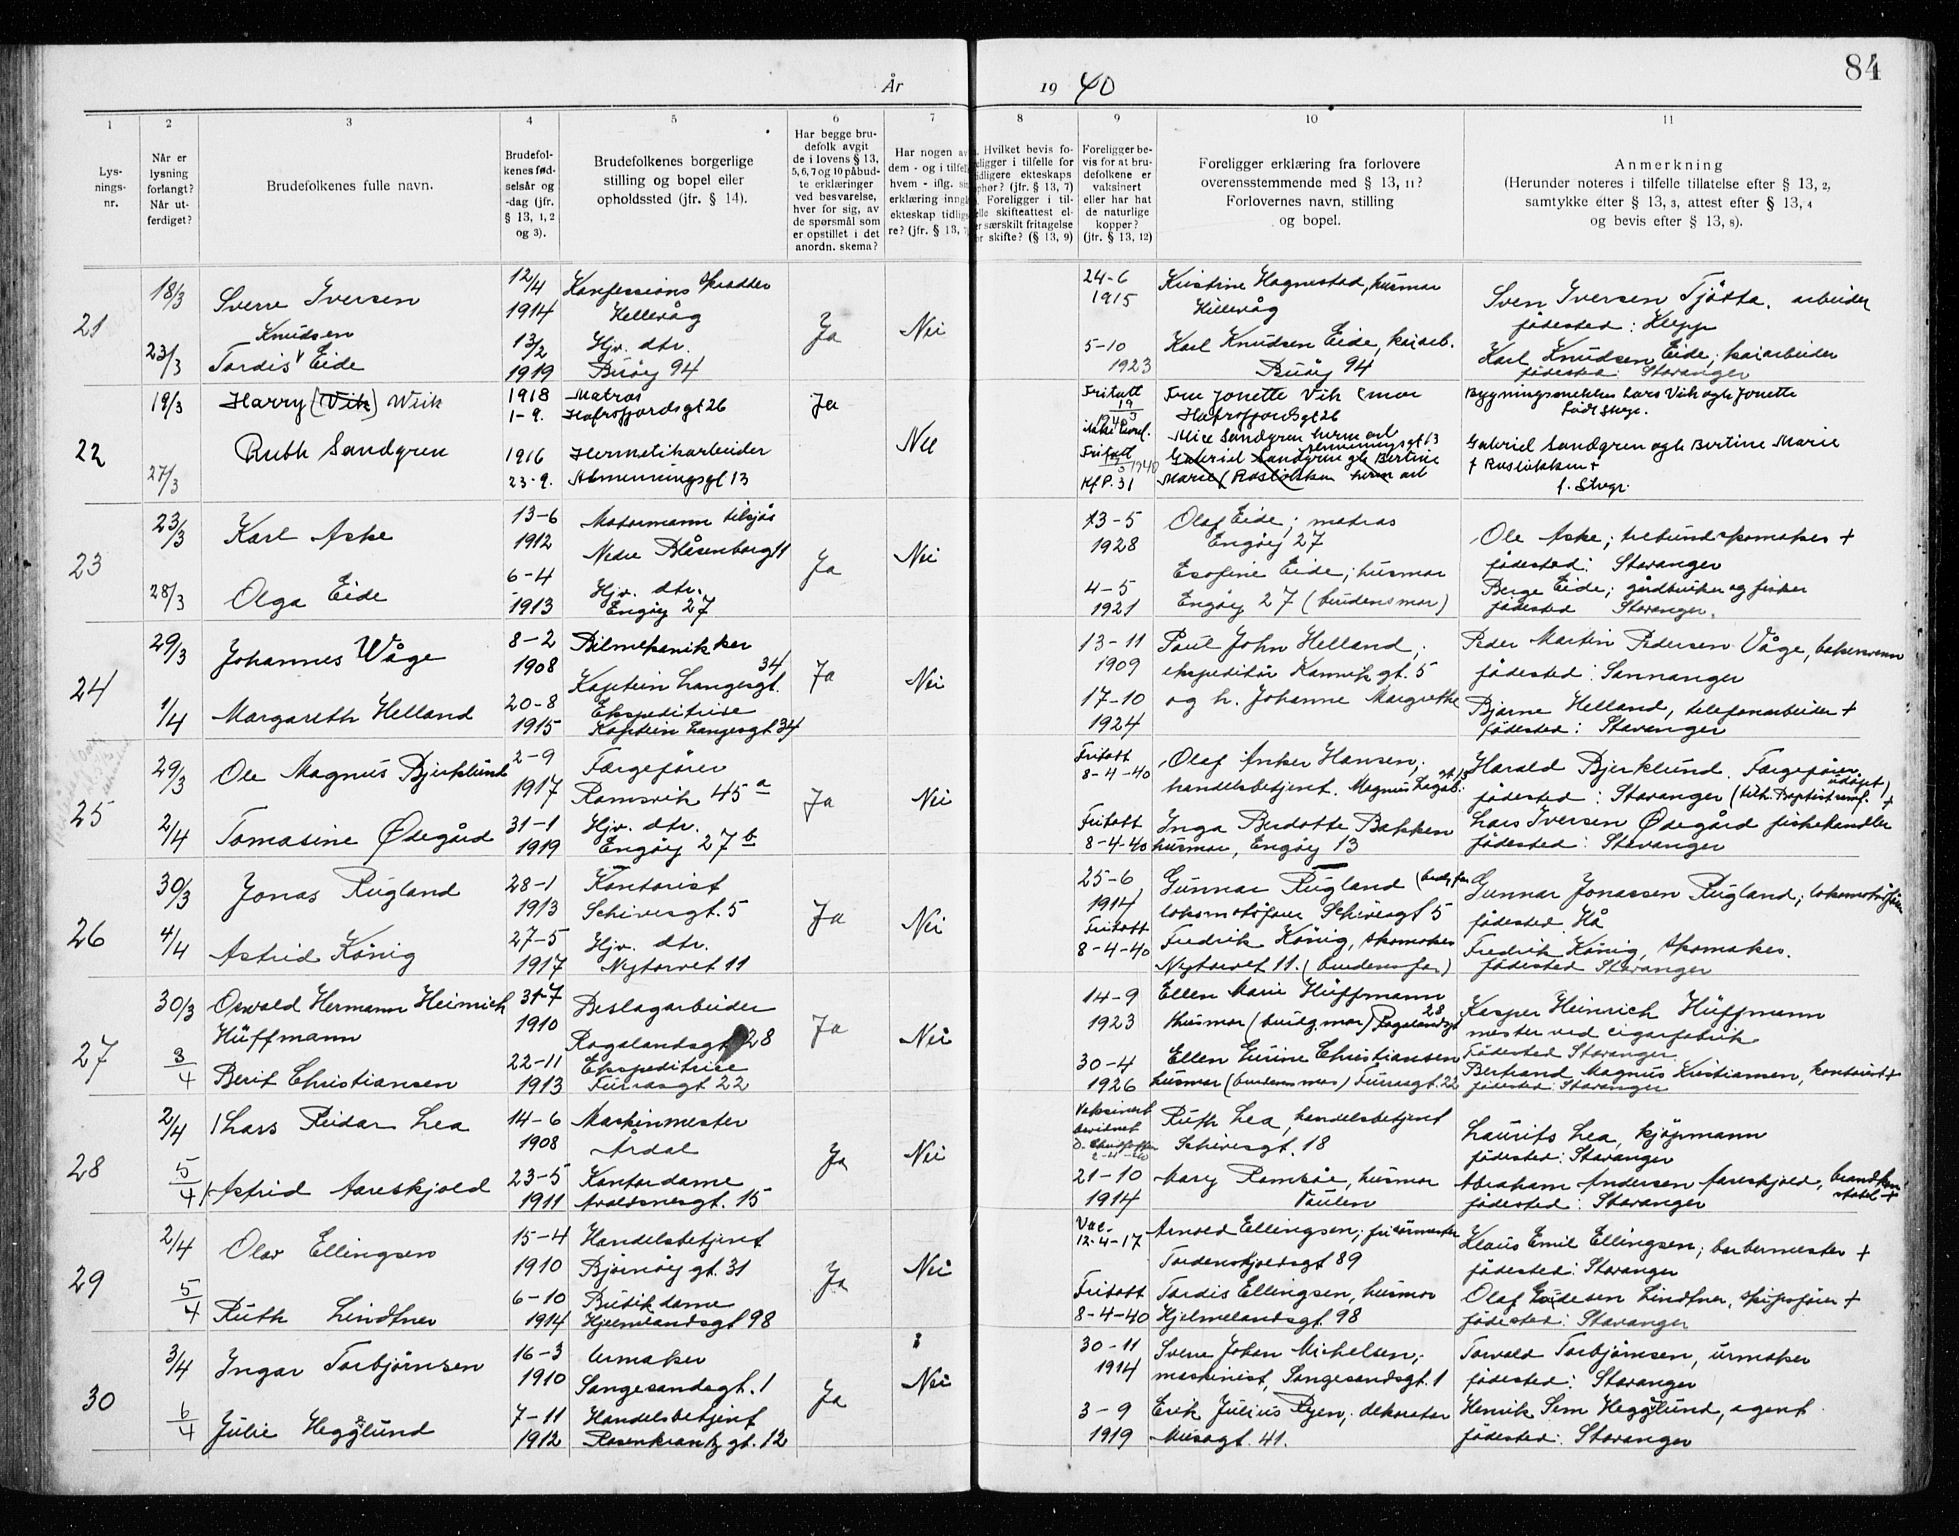 84
År 19 40
1 2 3 4 5 6 7 8 9 10 11
Lys-
nings-
nr.
Når er
lysning
forlangt?
Når ut-
ferdiget?
Brudefolkenes fulle navn.
Brudefol-
kenes fød-
selsår og
-dag (jfr.
§ 13, 1, 2
og 3).
Brudefolkenes borgerlige
stilling og bopel eller
opholdssted (jfr. § 14).
Har begge bru-
defolk avgit
de i lovens § 13,
5, 6, 7 og 10 påbud-
te erklæringer
ved besvarelse,
hver for sig, av
de spørsmål som
er opstillet i det
anordn. skema?
Har nogen av
dem - og i tilfel
hvem - iflg. si
erklæring inngå
ekteskap tidlig
re? (jfr. § 13,
Hvilket bevis fo-
eligger i tilfelle for
idligere ekteskaps
phør? (jfr. § 13, 7)
Foreligger i til-
elle skifteattest el-
er særskilt fritagelse
or skifte? (§ 13, 9)
Foreligger be-
vis for at bru-
defolkene er
vaksinert
eller har hat
de naturlige
kopper?
(jfr. § 13, 12)
Foreligger erklæring fra forlovere
overensstemmende med § 13, 11?
Forlovernes navn, stilling
og bopel.
Anmerkning
(Herunder noteres i tilfelle tillatelse efter § 13, 2,
samtykke efter § 13, 3, attest efter § 13, 4
og bevis efter § 13, 8).
21
18/3
23/3
Sverre Iversen
Knudsen
Tordis Eide
12/4
1914
13/2
1919
Konfessions
Hillevåg
Hjv. dtr.
Buøy 94
Ja
Nei
24-6
1915
5-10
1923
Kristine Hognestad, husmor
Hillevåg
Karl Knudsen Eide, kaiarb.
Buøy 94
Sven Iversen Tjötta, arbeider
födested: Klepp
Karl Knudsen Eide, kaiarbeider
födested: Stavanger
22
19/3
27/3
Harry (Vik) Wiik
Ruth Sandgren
1918
1-9.
1916
23-9.
Matros
Hafrsfjordsgt 26
Hermetikarbeider
Almenningsgt 13
Ja
Nei
Fritatt
19
Fritatt
Kf P. 31
Fru Jonette Vik (mor
Hafrsfjordsgt 26
Alice Sandgren herm arb
Almenningsgt 13
Gabriel Sandgren gh Bertine
Marie
Lars Vik ogh Jonette
født Stvgr.
Gabriel Sandgren ogh Bertine Marie
f. Stvgr.
23
23/3
28/3
Karl Aske
Olga Eide
13-6
1912
6-4
1913
Motormann tilsjøs
Nedre Blåsenborg 11
Hjv. dtr.
Engöy 27
Ja
Nei
13-5
1928
4-5
1921
Olaf Eide; matros
Engöy 27
Esofine Eide; husmor
Engöy 27 (brudens mor)
Ole Aske; trebundskomaker +
födested: Stavanger
Berge Eide; gårdbruker og fisker
födested Stavanger.
24
29/3
1/4
Johannes Våge
Margareth Helland
8-2
1908
20-8
1915
Bilmekanikker
34
Kaptein Langesgt.
Ekspeditrise
Kaptein Langesgt 34
Ja
Nei
13-11
1909
17-10
1924
Paul John Helland,
ekspeditör Kannikgt. 5
og h. Johanne Margrethe
Peder Martin Pedersen Våge, bakersvenn
födested: Samnanger
Bjarne Helland, telefonarbeider +
födested: Stavanger
25
29/3
2/4
Ole Magnus Bjerklund
Tomasine Ødegård
2-9
1917
31-1
1919
Færgefører
Ramsvik 45 a
Hjv. dtr.
Engöy 27 b
Ja
Nei
Fritatt
8-4-40
Fritatt
8-4-40
Olaf Anker Hansen,
handelsbetjent. Magnus Lagab.
Inga Berdotte Bakken
husmor, Engöy 13
Harald Bjerklund. Færgefører
födested: Stavanger (tilh. Baptistsamf.
Lars Iversen Ødegård fiskehandler
födested: Stavanger
26
30/3
4/4
Jonas Rugland
Astrid König
28-1
1913
27-5
1917
Kontorist
Schivesgt. 5
Hjv. dtr.
Nytorvet 11
Ja
Nei
25-6
1914
Fritatt
8-4-40
Gunnar Rugland (brudg. far
lokomotivfører Schivesgt 5
Fredrik König, skomaker
Nytorvet 11. (brudens far)
Gunnar Jonassen Rugland; lokomotivfører
födested Hå
Fredrik König, skomaker.
födested Stavanger
27
30/3
3/4
Osvald Hermann Heinrich
Hüffmann
Berit Christiansen
31-7
1910
22-11
1913
Beslagarbeider
Rogalandsgt 28
Ekspeditrise
Furrasgt 22
Ja
Nei
14-9
1923
30-4
1926
Ellen Marie Hüffmann
28
Husmor (brudg. mor) Rogalandsgt
Ellen Eurine Christiansen
husmor (brudens mor) Furrasgt. 22
Kasper Heinrich Hüffmann
mester ved cigarfabrik
Födested Stavanger
Bertrand Magnus Kristiansen, kontorist +
födested: Stavanger
28
2/4
5/4
Lars Reidar Lea
Astrid Aareskjold
14-6
1908
23-5
1911
Maskinmester
Årdal
Kontordame
Avaldsnesgt. 15
Ja
Nei
Vaksinert
21-10
1914
Ruth Lea, handelsbetjent
Schivesgt. 18
Mary Ramsöe, husmor
Paulen
Laurits Lea, kjöpmann
födested: Stavanger
Abraham Andersen Aareskjold, brandkon
stabel +
födested: Stavanger
29
2/4
5/4
Olav Ellingsen
Ruth Lindtner
15-4
1910
6-10
1914
Handelsbetjent
Björnöy gt. 31
Butikdame
Hjelmelandsgt 98
Ja
Nei
Vac.
12-4-17
Fritatt
8-4-40
Arnold Ellingsen; frisörmester
Tordenskjoldsgt 89
Tordis Ellingsen, husmor
Hjelmelandsgt. 98
Klaus Emil Ellingsen; barbermester +
födested: Stavanger
Olaf Lindtner, skipsfører +
födested: Stavanger
30
3/4
6/4
Ingar Torbjørnsen
Julie Hegglund
16-3
1910
7-11
1912
Urmaker
Sangesandsgt. 1
Handelsbetjent
Rosenkrantz gt. 12
Ja
Nei
30-11
1914
3-9
1919
Sverre Johan Michelsen;
maskinist, Sangesandsgt. 1
Erik Julius Ryen, dekoratør
Musegt. 41.
Torvald Torbjørnsen, urmaker
födested: Stavanger
Henrik Sem Hegglund, agent
födested: Stavanger